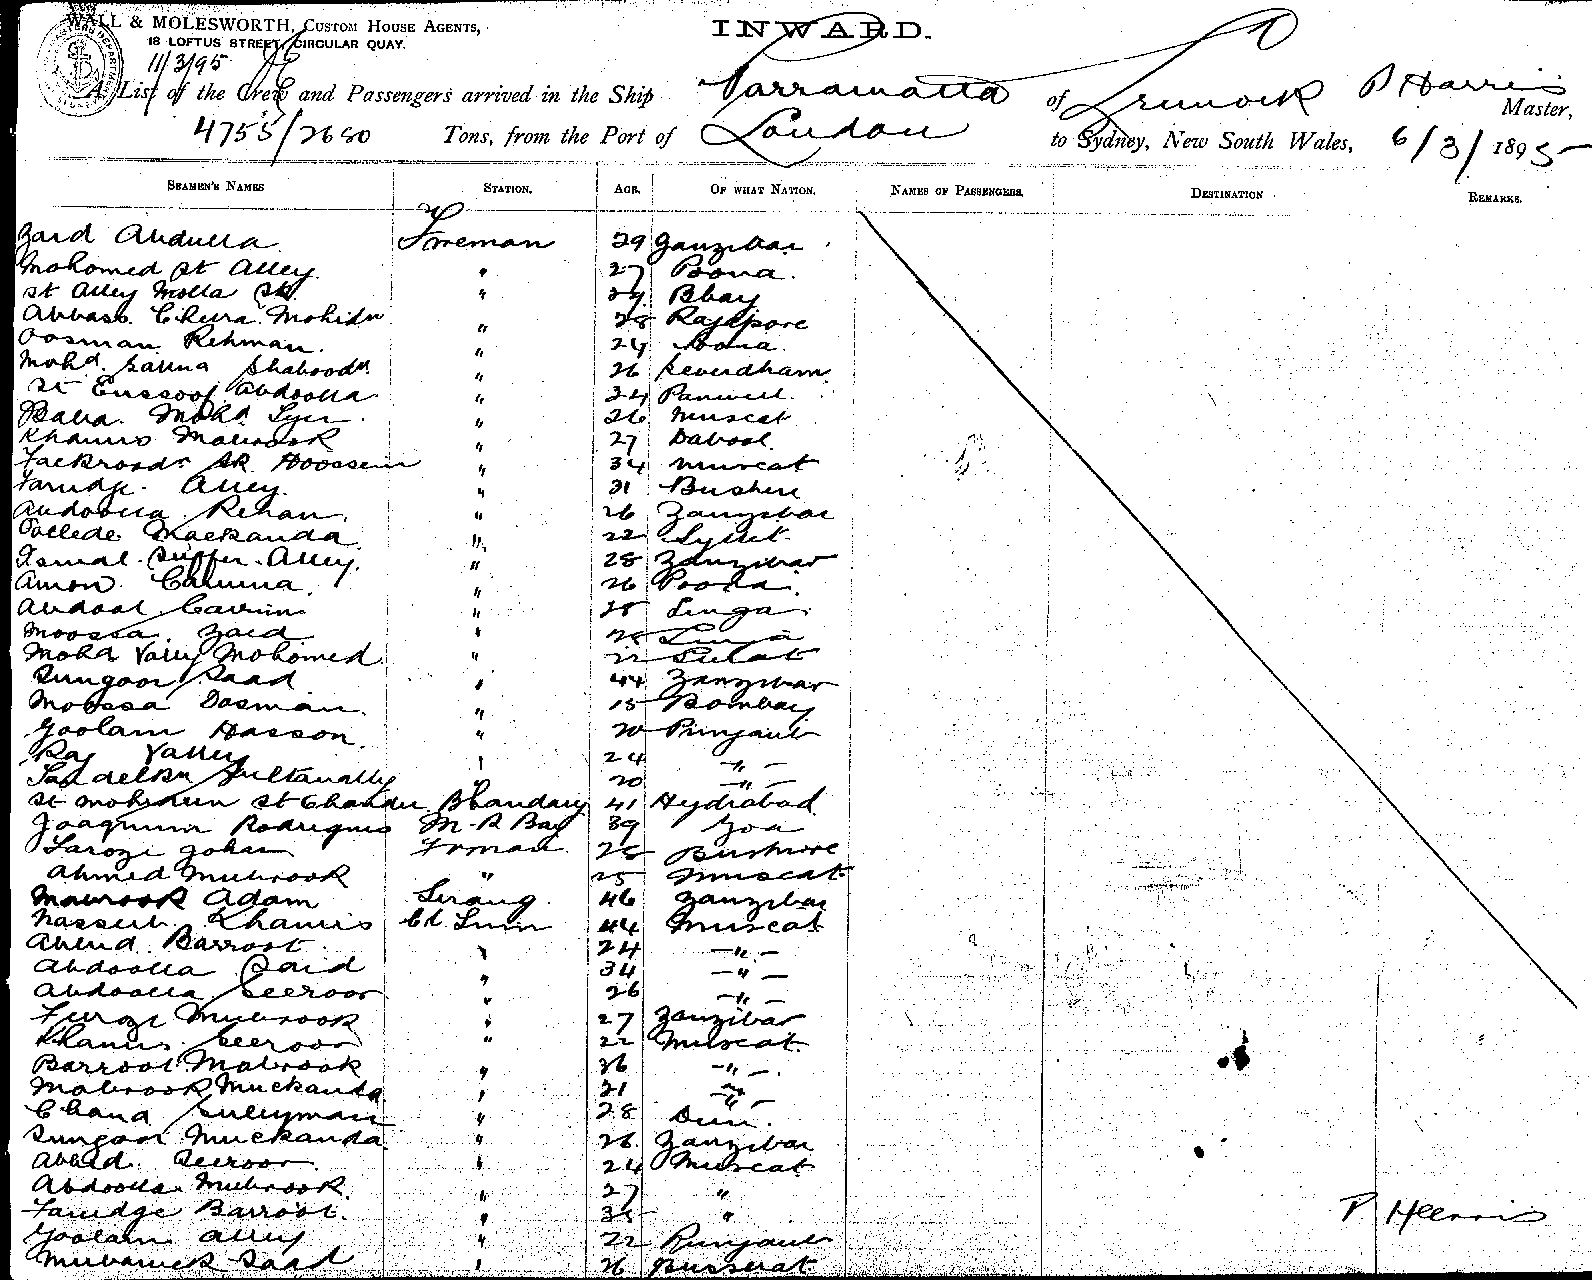 WALL & MOLESWORTH, CUSTOM HOUSE AGENTS,
18 LOFTUS STREET, CIRCULAR QUAY.
INWARD.
11/3/95
A List of the Crew and Passengers arrived in the Ship Parramatta of Greenock P Harris Master,
4755/2680 Tons, from the Port of London to Sydney, New South Wales, 6/3/1895
SEAMEN'S NAMES STATION. AGE. OF WHAT NATION. NAMES OF PASSENGERS. DESTINATION REMARKS.
Zaid Abdulla Fireman 29 Zanzibar
Mohomed St Alley " 27 Poona
St Alley Molla " Bbay
Abbass Mohidn " 28 Rajapore
Oosman Rehman " 24 Poona
Mohd " 26
St Eussoof Abdoolla " 24 Panwell
Baba Mohd " 26 Muscat
Khamis Mabrook " 27 Dabool
Hoossein " 34 Muscat
Faridge Alley " 31 Bushire
Abdoolla Rehan " 26 Zanzibar
Mackanda " 22
Ismal Suffer Alley " 28 Zanzibar
Amon " 26 Poona
Abdool Carrim " 28 Linga
Moossa Zaid " Linga
Mohd Vally Mohomed " 22 Surat
Sungoor Saad " 44 Zanzibar
Moossa Oosman " 15 Bombay
Goolam Hasson " 20 Punjaub
Raj Valley " 24 "
Sultanally " 20 "
St Mohideen St Chander Bhandary 41 Hydrabad
Joaquim Rodrigues M. R Boy 39 Goa
Faroze Johar Firman 28 Bushire
Ahmed Mubrook " 25 Muscat
Mabrook Adam Serang 46 Zanzibar
Nasseeb Khamis 44 Muscat
Abeid Barroot " 24 "
Abdoolla Said " 34 "
Abdoolla Seeroor " 26 "
Feroze Mubrook " 27 Zanzibar
Khamis Seeroor " 22 Muscat
Barroot Mabrook " 26 "
Mabrook Muckanda " 21 "
Chand Suleyman " 28
Sungoor Muckanda " 26 Zanzibar
Abeid Seeroor " 24 Muscat
Abdoolla Mubrook " 27 "
Faridge Barroot " 35 "
Goolam Alley " 22 Punjaub
Mubarick Saad " 26 Busserat
P Harris